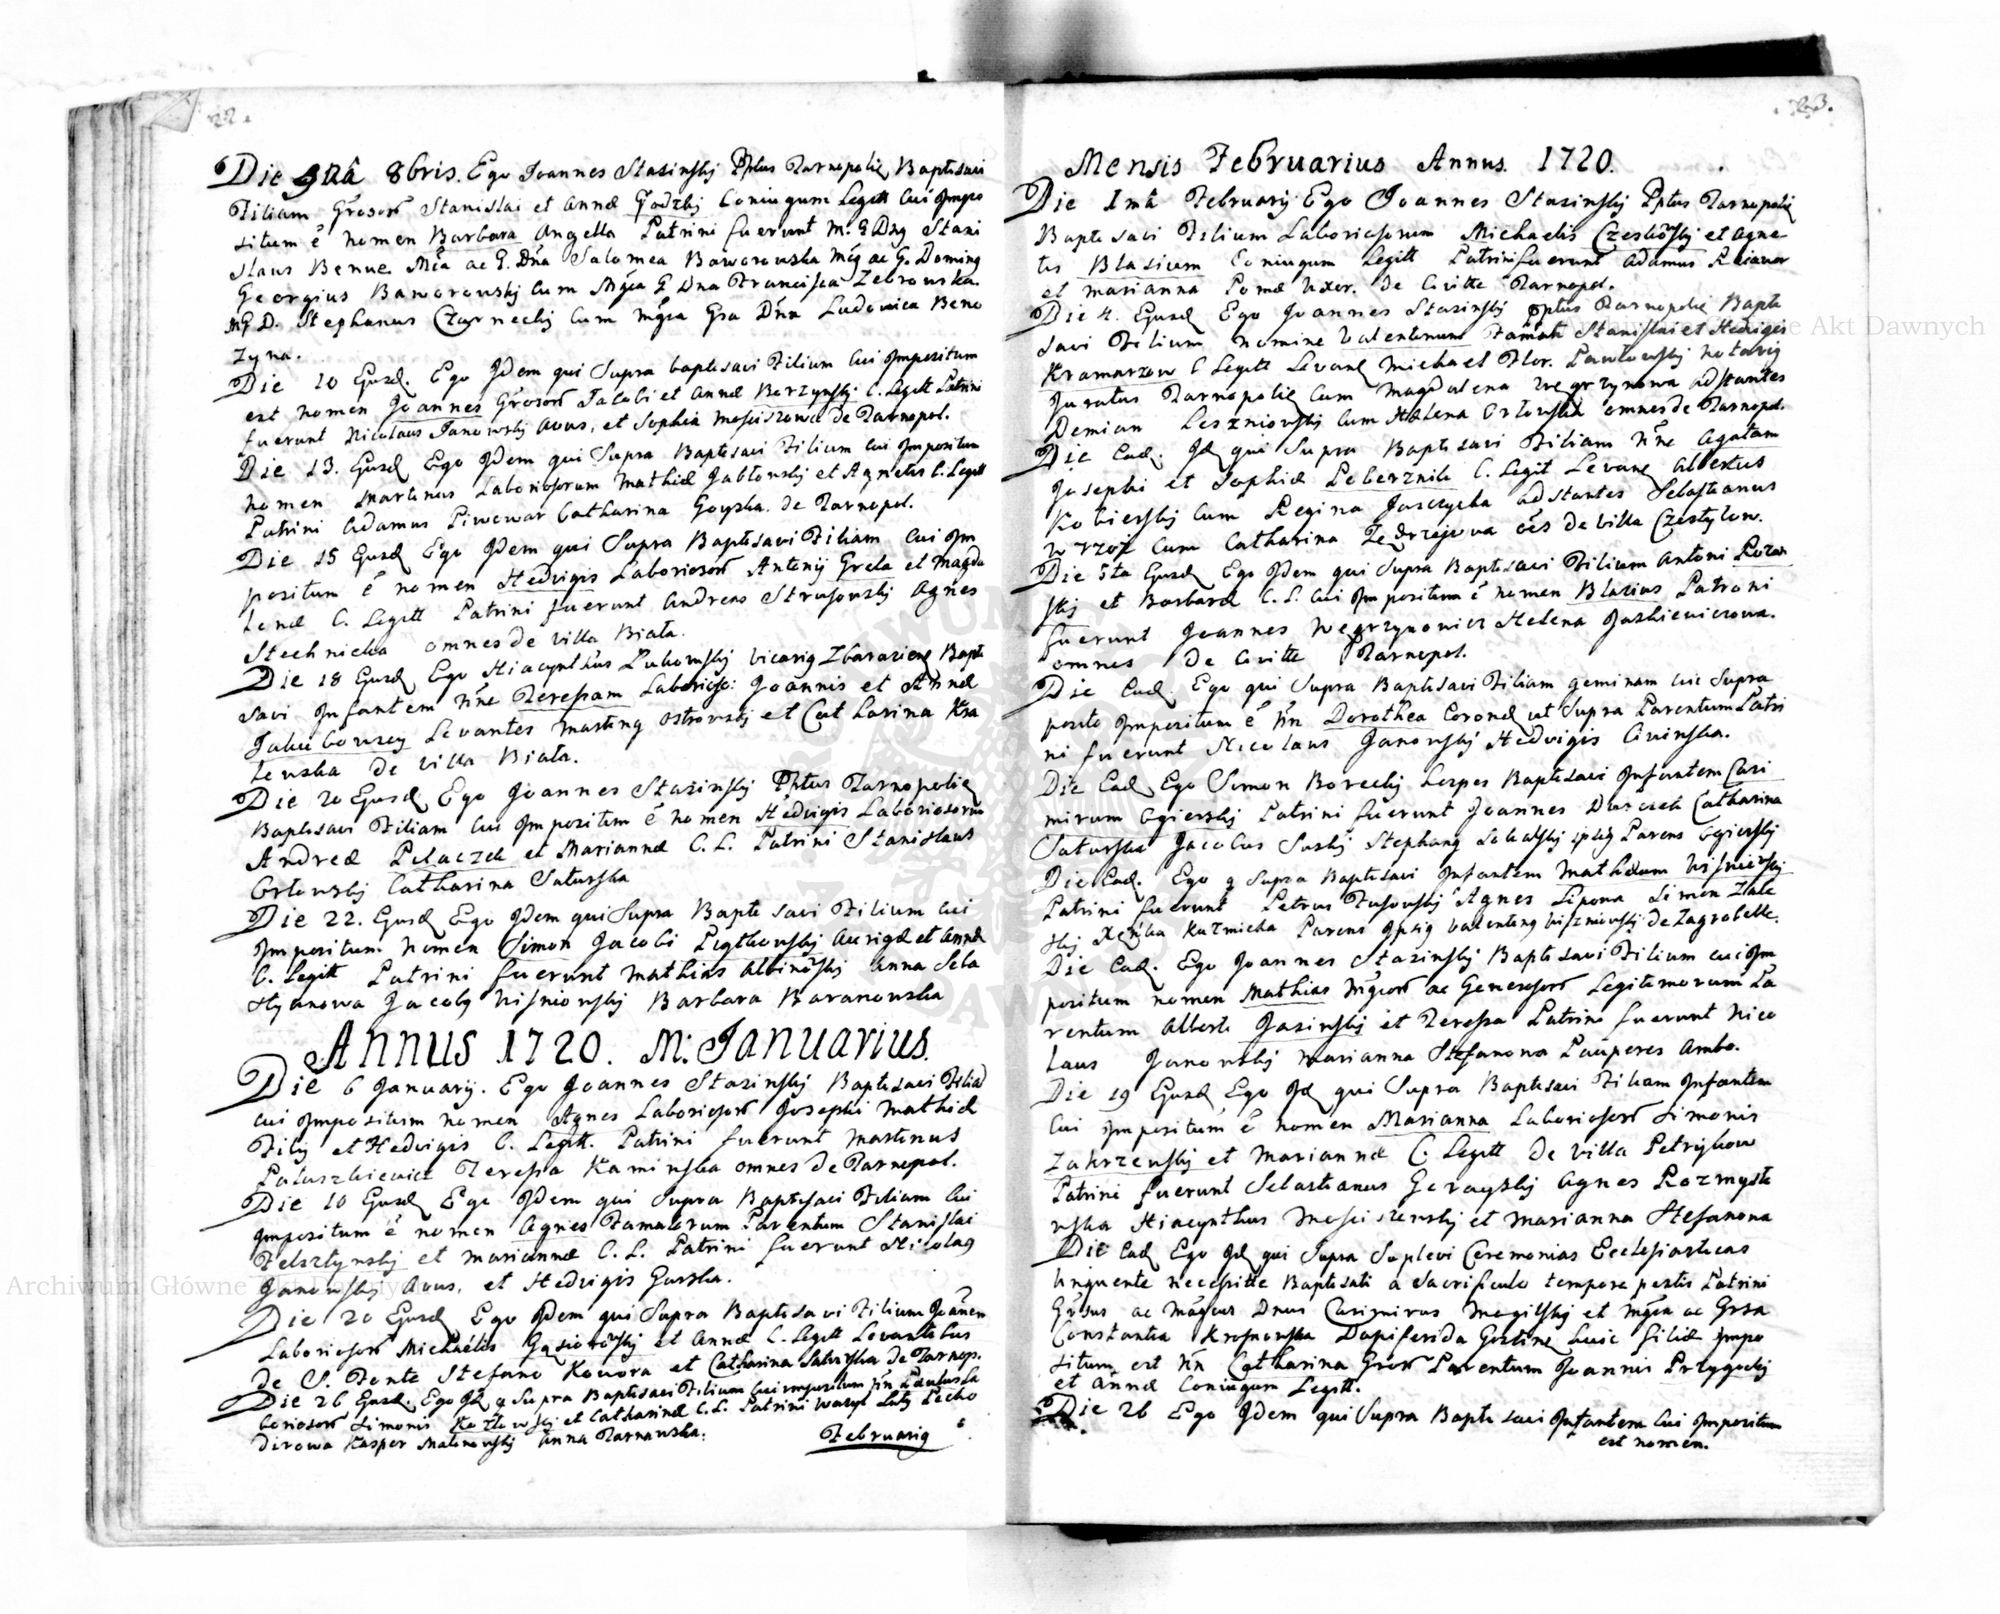 22.
Die 9na 8bris. Ego Joannes Stasinskij Pptus Tarnopolię Baptisavi
Filiam Grosorū Stanislai et Annæ Godzkij Coniugum Legitt cui Impo
situm ē nomen Barbara Angella Patrini fuerunt M. G Dng Stani
slaus Benue. Mca ac G. Dna Salomea Baworowska Mcg ac G. Doming
Georgius Baworowskij cum Mgca G Dna Francisca Zebrowska.
MG D. Stephanus Czarneckij cum Mgca Gsa Dna Ludovica Beno
zyna.
Die 10 Eiusd. Ego Idem qui Supra baptisavi Filium cui Impositum
est nomen Joannes Grosorū Jacobi et Annæ Berzynskij C. Legitt Patrini
fuerunt Nicolaus Janowskij Avus, et Sophia Mosciszowa de Tarnopol.
Die 13. Eiusd Ego Idem qui Supra Baptisavi Filium cui Impositum
nomen Martinus Laboriosorum Mathiæ Jabłonskij et Agnetis C. Legitt
Patrini Adamus Piwowar Catharina Goyska. de Tarnopol.
Die 15 Eiusd Ego Idem qui Supra Baptisavi Filiam cui Im
positum ē nomen Hedvigis Laboriosorū Antonij Grela et Magda
lenæ C. Legitt Patrini fuerunt Andreas Strusowskij Agnes
Stechnicka omnes de villa Biała.
Die 18 Eiusd Ego Hiacynthus Lukowskij vicarig Zbarazienę Bapti
savi Infantem nñe Teressam Laborioso: Joannis et Annæ
Jakubowscy Levantes Marting Ostrovskij et Catharina Kra
lewska de villa Biała.
Die 20 Eiusd Ego Joannes Stasinskij Pptus Tarnopolię
Baptisavi Filiam cui Impositum ē nomen Hedvigis Laboriosorum
Andreæ Pelaczek et Mariannæ C. L. Patrini Stanislaus
Orłowskij Catharina Saturska
Die 22. Eiusd Ego Idem qui Supra Baptisavi Filium cui
Impositum nomen Simon Jacobi Piątkowskij Aurigæ et Annæ
C. Legitt Patrini fuerunt Mathias Albinowskij Anna Seba
styanowa Jacobg Wisniowskij Barbara Baranowska
Annus 1720. M: Januarius.
Die 6 Januarij. Ego Joannes Stasinskij Baptisavi Filiā
cui Impositum nomen Agnes Laboriosorū Josephi Mathiæ
Filij et Hedvigis C. Legitt. Patrini fuerunt Martinus
Paluszkiewicz Teressa Kaminska omnes de Tarnopol.
Die 10 Eiusd Ego Idem qui Supra Baptisavi Filiam cui
Impositum ē nomen Agnes Famatorum Parentum Stanislai
Felsztynskij et Mariannæ C. L. Patrini fuerunt Nicolag
Janowskij Avus, et Hedvigis Gurska.
Die 20 Eiusd Ego Idem qui Supra Baptisavi Filium Joanem
Laboriosorū Michaelis Gąsiorowskij et Annæ C. Legitt Levantibus
de S. Fonte Stefano Kowora et Catharina Saturska de Tarnop.
Die 26 Eiusd. Ego Id q Supra Baptisavi Filium cui impositum nñ Paulus La
boriosorū Simonis Kozłowskij et Catharinæ C. L. Patrini Wasyl Luty Pecho
dirowa Kasper Malinowskij Anna Tarnawska.
Februarig
23.
Mensis Februarius Annus. 1720.
Die 1mā Februarij Ego Joannes Stasinskij Pptus Tarnopolię
Baptisavi Filium Laboriosorum Michaelis Czeskowskij et Agne
tis Blasium Coniugum Legitt Patrini fuerunt Adamus Piwowar
et Marianna Pomæ Uxor. de Civitte Tarnopol.
Die 4. Eiusd Ego Joannes Stasinskij Pptus Tarnopolię Bapti
savi Filium nomine Valentinum Famatt Stanislai et Hedvigis
Kramarzow C Legitt Levanę Michael Flor. Pawłowskij Notarig
Juratus Tarnopolię cum Magdalena Węgrzynowa Adstantes
Demian Leszniowskij cum Helena Orłowska omnes de Tarnopol.
Die Ead. Id qui Supra Baptisavi Filiam nñe Agatam
Josephi et Sophiæ Peberznik C. Legit Levanę Albertus
Kobierskij cum Regina Jaszczycha adstantes Sebastianus
Wrzos cum Catharina Jędrzejowa oēs de villa Czestylow.
Die 5ta Eiusd Ego Idem qui Supra Baptisavi Filium Antoni Rozan
skij et Barbaræ C. L. cui Impositum ē nomen Blasius Patroni
fuerunt Joannes Węgrzynowicz Helena Jaskiewiczowa.
omnes de Civitte Tarnopol.
Die Ead. Ego qui Supra Baptisavi Filiam geminam cui Supra
posito Impositum ē nñ Dorothea Coronæ ut Supra Parentum Patri
ni fuerunt Nicolaus Janowskij Hedvigis Cwinska.
Die Ead Ego Simon Boreckij Hospes Baptisavi Infantem Casi
mirum Ogierskij Patrini fuerunt Joannes Durczek Catharina
Saturska Jacobus Suskij Stephang Sokalskij ipsig Parens Ogierskij
Die Ead. Ego q Supra Baptisavi Infantem Mathæum Wisniewskij
Patrini fuerunt Petrus Rusowskij Agnes Lipona Simon Zlate
skij Xenka Kuzmicka Parens Ipsig Valenting Wiszniowskij de Zagrobelle.
Die Ead. Ego Joannes Stasinskij Baptisavi Filium cui Im
positum nomen Mathias Mgcorū ac Generosorū Legitimorum Pa
rentum Alberti Jasinskij et Teressa Patrini fuerunt Nico
laus Janowskij Marianna Stefanowa Pauperes Ambo.
Die 19 Eiusd Ego Id qui Supra Baptisavi Filiam Infantem
cui Impositum ē nomen Marianna Laboriosorū Simonis
Zakrzewskij et Mariannæ C. Legitt de villa Petrykow
Patrini fuerunt Sebastianus Gerayskij Agnes Rozmysło
wska Hiacynthus Mosciszewskij et Marianna Stefanowa
Die Ead Ego Id qui Supra Suplevi Ceremonias Ecclesiasticas
urgente necessitte Baptisati a Sacrificulo tempore pestis Patrini
Grosus ac Magcus Dnus Casimirus Mogilskij et Mgca ac Grsa
Constantia Krosnowska Dapiferida Gostinę huic Filiæ Impo
situm est nñ Catharina Grorū Parentum Joannis Przygockij
et Annæ Coniugum Legitt.
Die 26 Ego Idem qui Supra Baptisavi Infantem cui Impositum
est nomen.
Archiwum Główne Akt Dawnych
Archiwum Główne Akt Dawnych